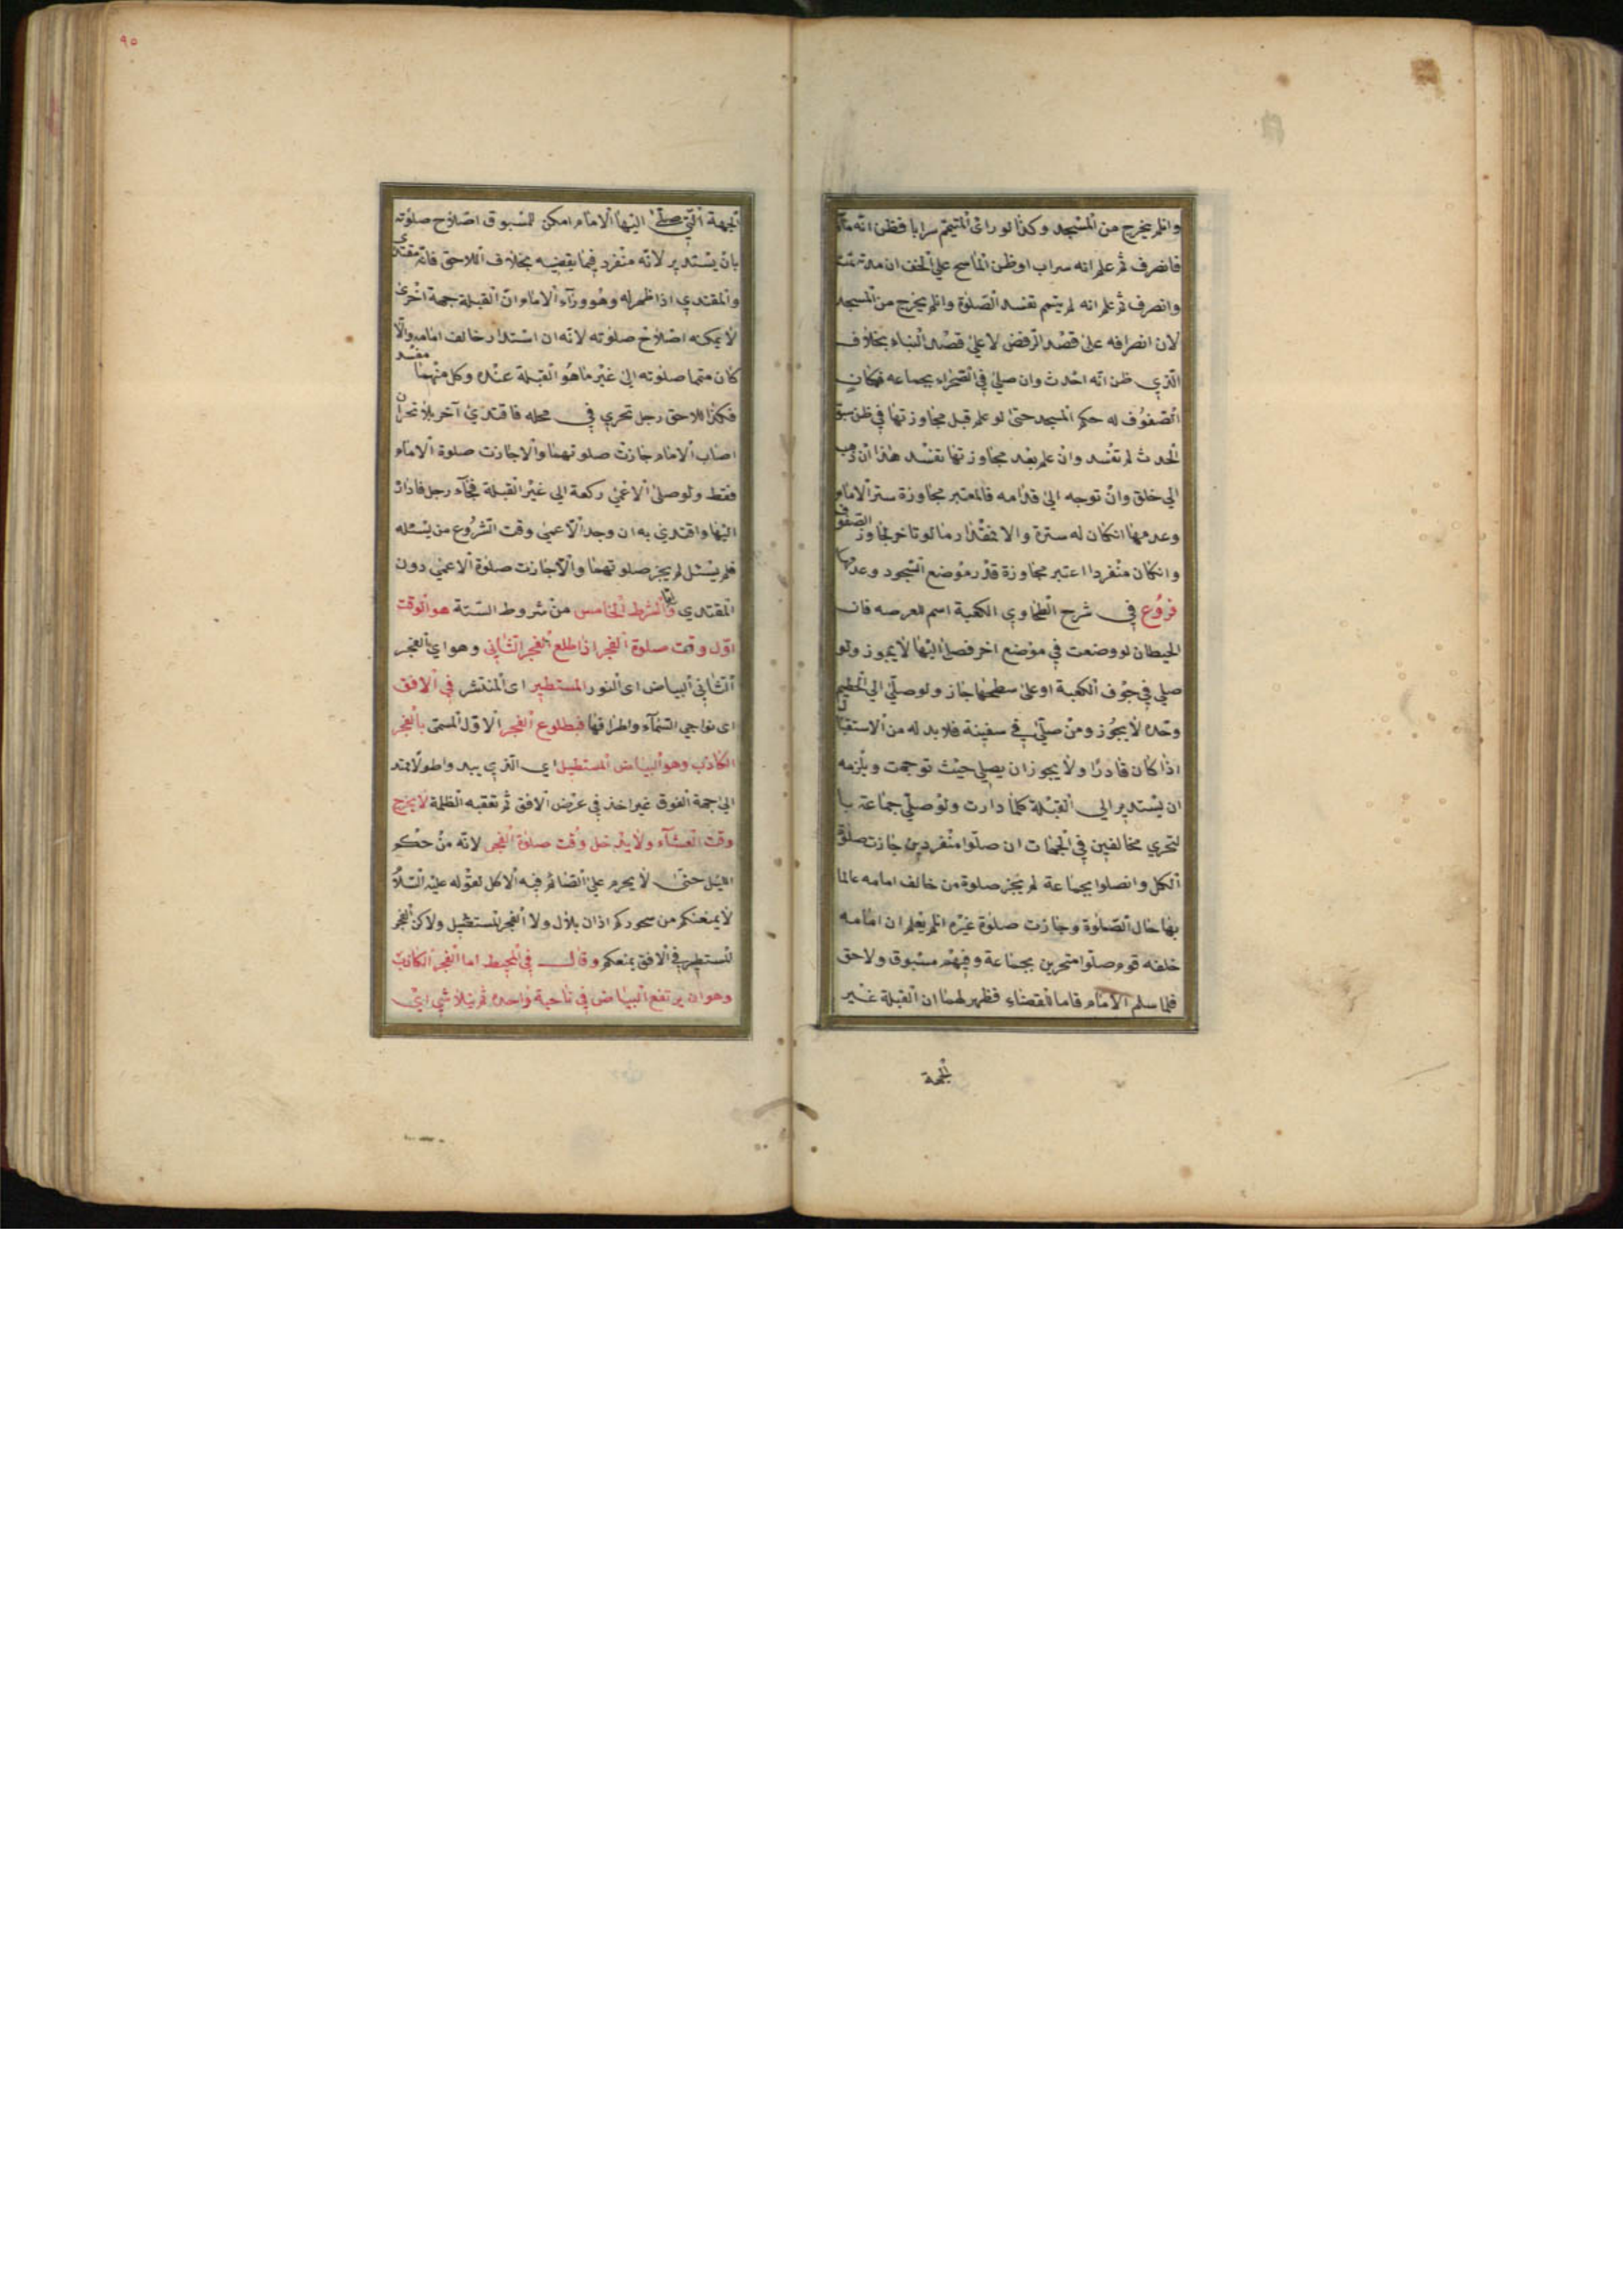 وانلم يخرج من المسجد وكذا لو رائ المتيمم سرابا فظن انه ماء
فانصرف ثم علم انه سراب او ظن الماسح على الخف ان مدته تمت
وانصرف ثم علم انه لم يتم تفسد الصلوة وانلم يخرج من المسجد
لان انصرافه على قصد الرفض لا على قصد البناء بخلاف
الذي ظن انه احدث وان صلى في الصحراء بجماعه فمكان
الصفوف له حكم المسجد حتى لو علم قبل مجاوزتها في ظن سبق
الحدث لم تفسد وان علم بعد مجاوزتها تفسد هذا ان ذهب
الى خلف وان توجه الى قدامه فالمعتبر مجاوزة ستر الامام
وعدمها انكان له سترة والا فمقدار ما لو تاخر لجاوز الصفوف
وانكان منفردا اعتبر مجاوزة قدر موضع السجود وعدمها
فروع في شرح الطحاوي الكعبة اسم للعرصه فان
الحيطان لو وضعت في موضع اخر فصلى اليها لا يجوز ولو
صلى في جوف الكعبة او على سطحها جاز ولو صلى الى الحطيم
وحده لا يجوز ومن صلى في سفينة فلا بد له من الاستقبال
اذا كان قادرا ولا يجوز ان يصلي حيث توجهت ويلزمه
ان يستدير الى القبلة كلما دارت ولو صلى جماعة با
لتحري مخالفين في الجهات ان صلوا منفردين جازت صلوة
الكل وانصلوا بجماعة لم يجز صلوة من خالف امامه عالما
بها حال الصلوة وجازت صلوة غيره انلم يعلم ان امامه
خلفه قوم صلوا متحرين بجماعة وفيهم مسبوق ولاحق
فلما سلم الامام قاما للقضاء فظهر لهما ان القبلة غير
الجهة
٩٥
الجهة التي صلى اليها الامام امكن للمسبوق اصلاح صلوته
بان يستدير لانه منفرد فيما يقضيه بخلاف اللاحق فانه مقتدى
والمقتدي اذا ظهر له وهو وراء الامام ان القبلة جهة اخرى
لا يمكنه اصلاح صلوته لانه ان استدار خالف امامه والا
كان متما صلوته الى غير ما هو القبلة عنده وكل منهما مفسد
فكذا اللاحق رجل تحرى في محله فاقتدى آخر بلا تحر ان
اصاب الامام جازت صلوتهما والا جازت صلوة الامام
فقط ولو صلى الاعمى ركعة الى غير القبلة فجاء رجل فاداره
اليها واقتدى به ان وجد الاعمى وقت الشروع من يسئله
فلم يسئل لم يجز صلوتهما والا جازت صلوة الاعمى دون
المقتدي واما الشرط الخامس من شروط الستة هو الوقت
اول وقت صلوة الفجر اذا طلع الفجر الثاني وهو اي الفجر
الثاني البياض اى النور المستطير اى المنتشر في الافق
اى نواحي السماء واطرافها فبطلوع الفجر الاول المسمى بالفجر
الكاذب وهو البياض المستطيل اي الذي يبدو طولا ممتد
الى جهة الفوق غير اخذ في عرض الافق ثم تعقبه الظلمة لا يخرج
وقت العشاء ولا يدخل وقت صلوة الفجر لانه من حكم
الليل حتى لا يحرم على الصائم فيه الاكل لقوله عليه السلام
لا يمنعنكم من سحوركم اذان بلال ولا الفجر لمستطيل ولاكن الفجر
لمستطير في الافق يمنعكم وقال في المحيط اما الفجر الكاذب
وهو ان يرتفع البياض في ناحية واحده ثم يتلاشى اي